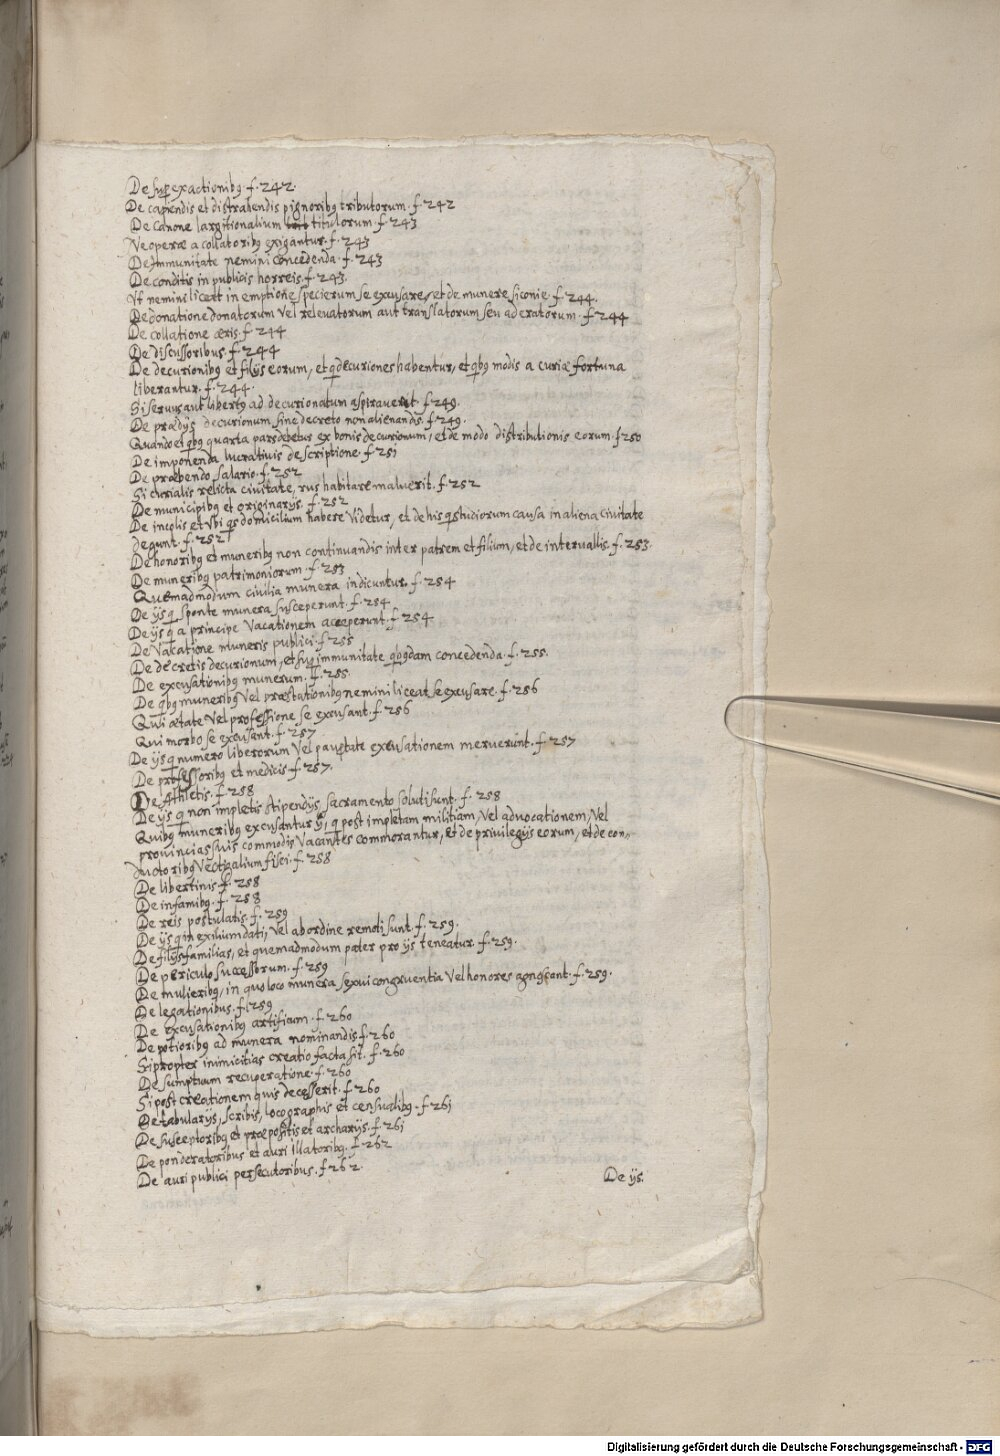 De sup exactionibꝫ f. 242.
De capiendis et distrahendis pignoribꝫ tributorum. f. 242
De Canone largitionalium titulorum. f. 243
Ne operæ a collatoribꝫ exigantur. f. 243
De Immunitate nemini concedenda. f. 243
De conditis in publicis horreis. f. 243.
Ut nemini liceat in emptione specierum se excusare, et de munere siconiæ. f. 244.
De donatione donatorum vel relevatorum aut translatorum seu aderatorum. f. 244
De collatione æris. f. 244
De discussoribus. f. 244
De decurionibꝫ et filijs eorum, et q decuriones habentur, et qbꝫ modis a curiæ fortuna
liberantur. f. 244.
Si servus aut libertꝫ ad decurionatum aspiraverit. f. 249.
De prædijs decurionum sine decreto non alienandis. f. 249.
Quando et qbꝫ quarta pars debetur ex bonis decurionum, et de modo distributionis eorum. f. 250
De imponenda lucrativis descriptione. f. 251
De præbendo salario. f. 252
Si curialis relicta civitate, rus habitare maluerit. f. 252
De municipibꝫ et originarijs. f. 252
De incolis et Vbi qs domicilium habere videtur, et de his q studiorum causa in aliena civitate
degunt. f. 252
De honoribꝫ et muneribꝫ non continuandis inter patrem et filium, et de intervallis. f. 253.
De muneribꝫ patrimoniorum. f. 253
Quemadmodum civilia munera indicuntur. f. 254
De ijs q sponte munera susceperunt. f. 254
De ijs q a principe Vacationem acceperunt. f. 254
De Vacatione muneris publici. f. 255
De decretis decurionum, et sup immunitate qbꝫdam concedenda. f. 255.
De excusationibꝫ munerum. f. 255.
De qbꝫ muneribꝫ vel præstationibꝫ nemini liceat se excusare. f. 256
Qui ætate Vel professione se excusant. f. 256
Qui morbo se excusant. f. 257
De ijs q numero liberorum Vel paupertate excusationem meruerunt. f. 257
De professoribꝫ et medicis. f. 257.
De Athletis. f. 258
De ijs q non impletis stipendijs sacramento soluti sunt. f. 258
Quibꝫ muneribꝫ excusantur ij, q post impletam militiam, vel advocationem, Vel
provincias suis commodis Vacantes commorantur, et de privilegijs eorum, et de con-
ductoribꝫ Vectigalium fisci. f. 258
De libertinis. f. 258
De infamibꝫ. f. 258
De reis postulatis. f. 259
De ijs q in exilium dati, vel ab ordine remoti sunt. f. 259.
De filijsfamilias, et quemadmodum pater pro ijs teneatur. f. 259.
De periculo successorum. f. 259
De mulieribꝫ, in quo loco munera sexui congruentia Vel honores agnoscant. f. 259.
De legationibus. f. 259
De excusationibꝫ artificum. f. 260
De potioribꝫ ad munera nominandis. f. 260
Si propter inimicitias creatio facta sit. f. 260
De sumptuum recuperatione. f. 260
Si post creationem quis decesserit. f. 260
De tabularijs, scribis, locographis et censualibꝫ. f. 261
De susceptoribꝫ et præpositis et archarijs. f. 261
De ponderatoribus et auri illatoribꝫ. f. 262
De auri publici persecutoribus. f. 262.
De ijs.
Digitalisierung gefördert durch die Deutsche Forschungsgemeinschaft - DFG